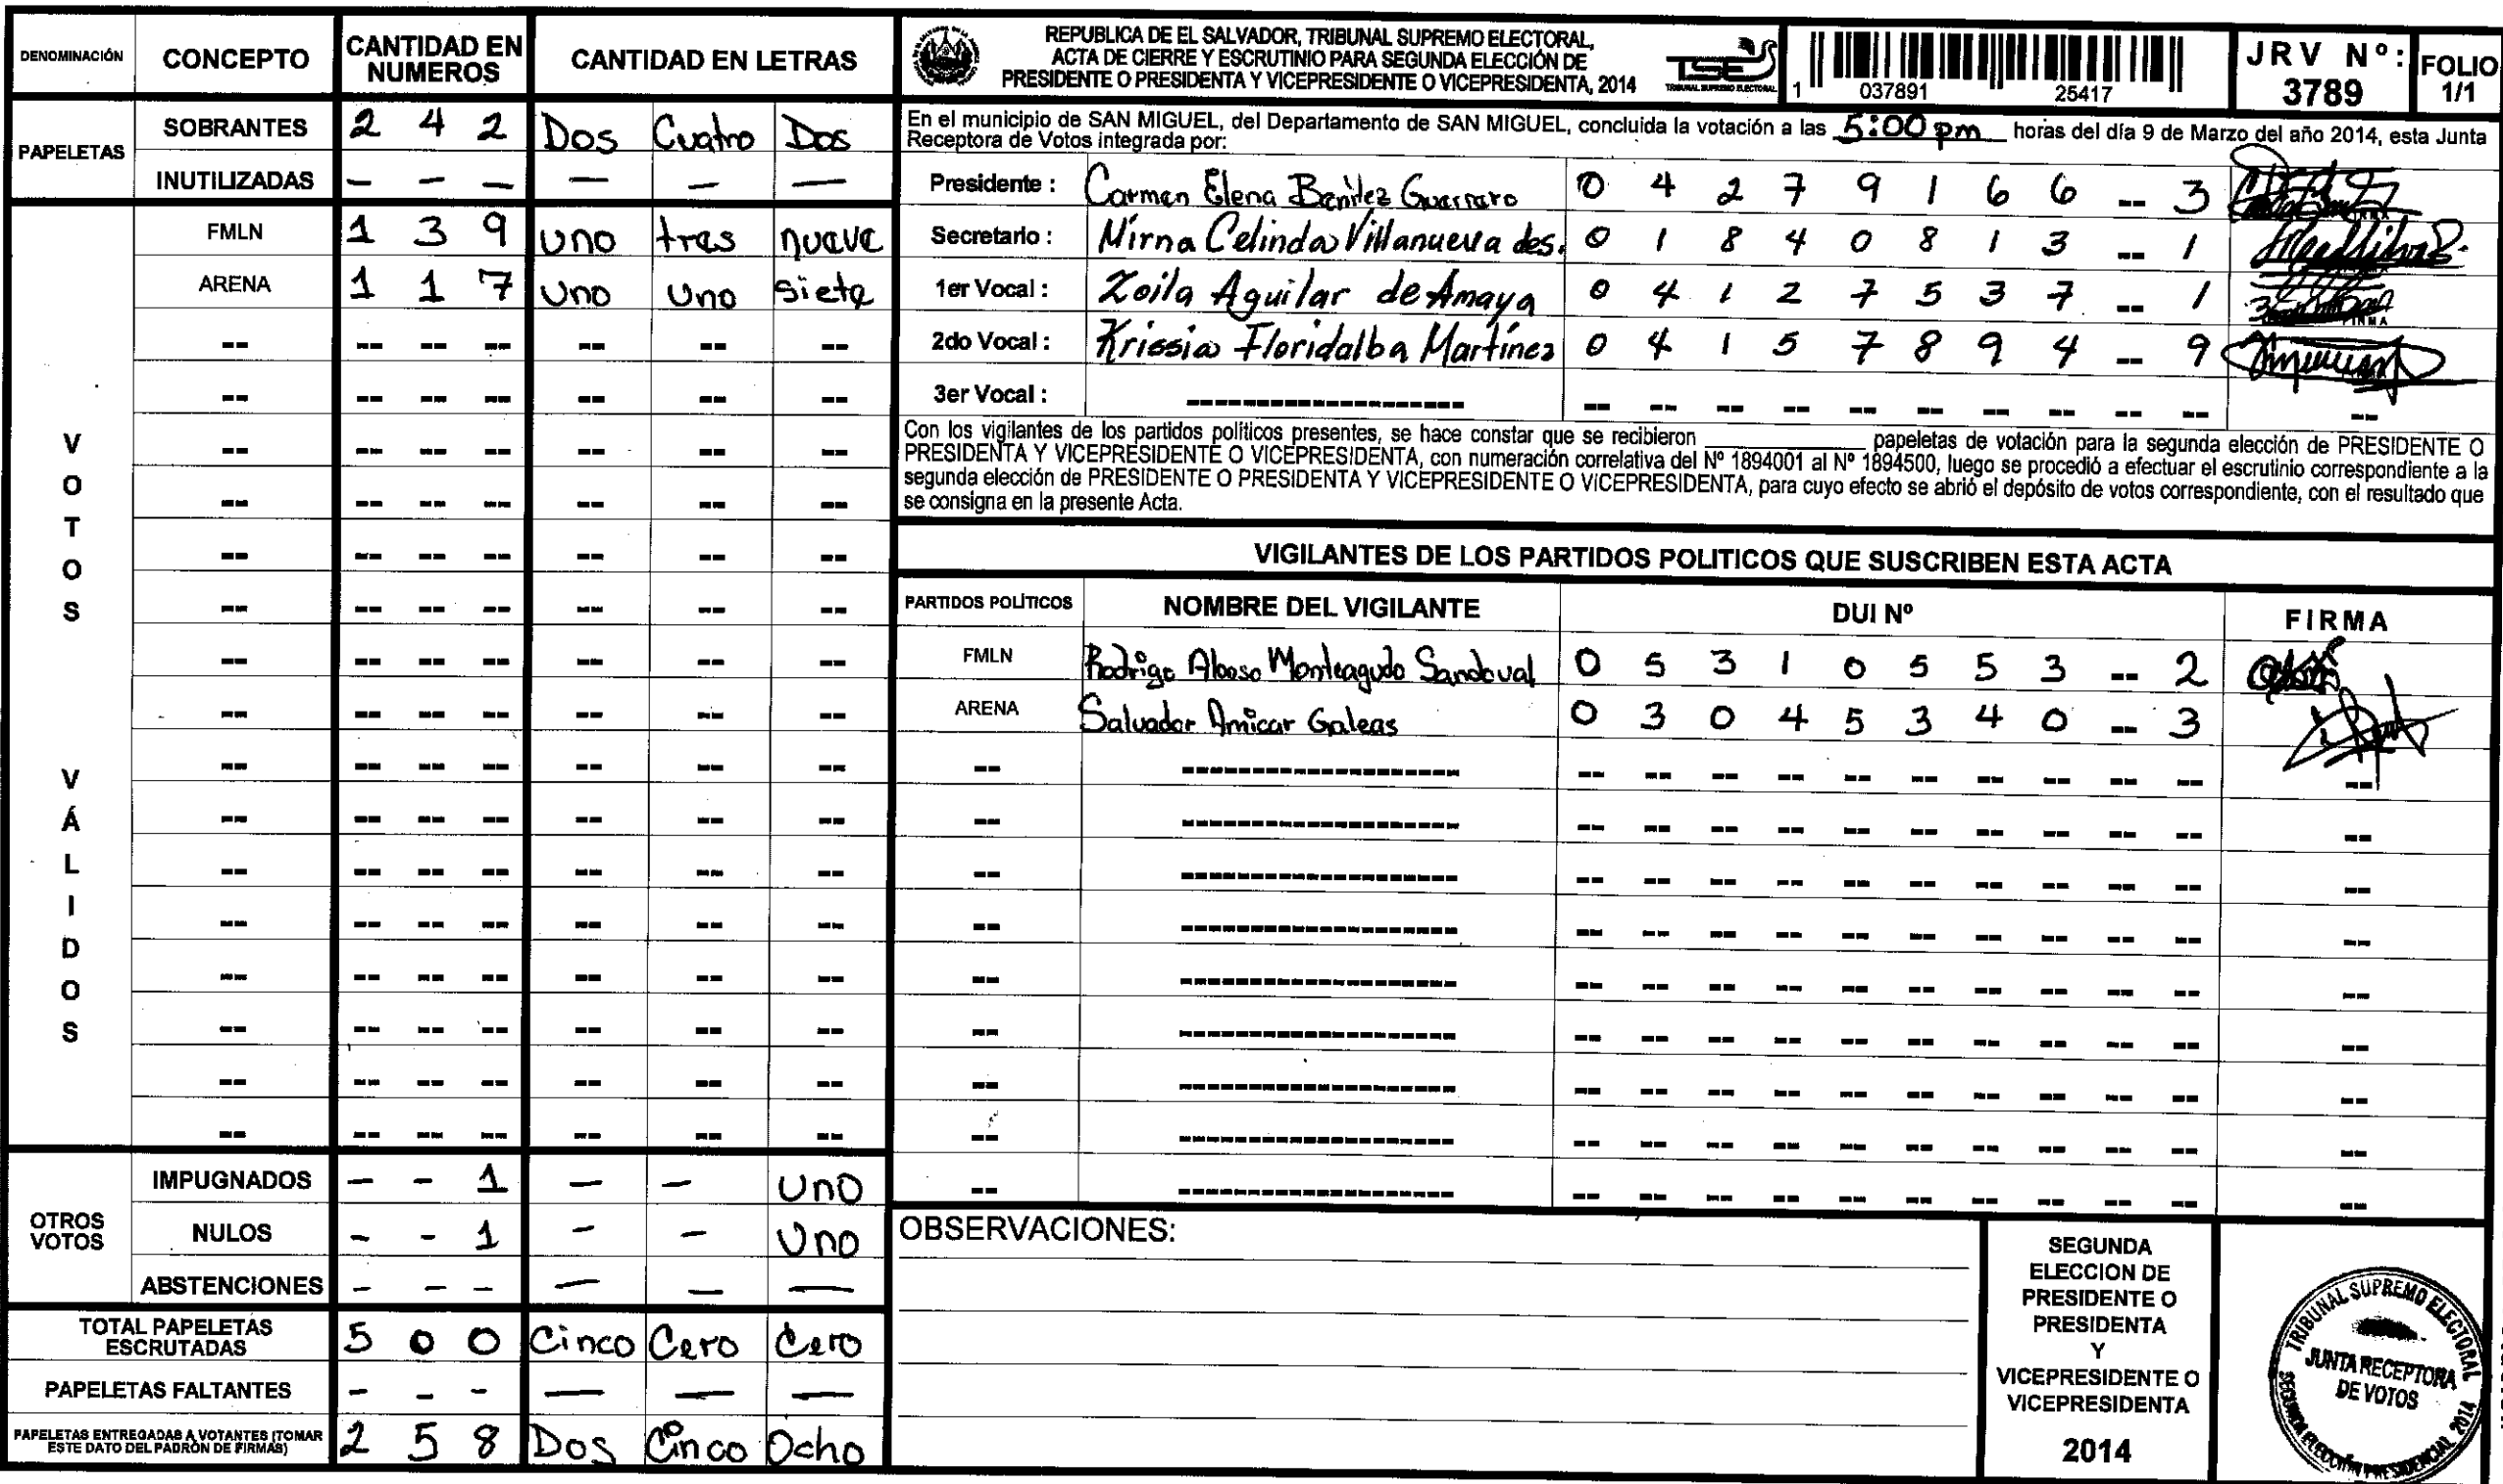 DENOMINACIÓN CONCEPTO CANTIDAD EN NUMEROS CANTIDAD EN LETRAS
PAPELETAS
SOBRANTES 2 4 2 Dos Cuatro Dos
INUTILIZADAS — — — — — —
VOTOS VÁLIDOS
FMLN 1 3 9 uno tres nueve
ARENA 1 1 7 Uno Uno siete
OTROS VOTOS
IMPUGNADOS - - 1 — — Uno
NULOS - - 1 — — Uno
ABSTENCIONES - - - — — —
TOTAL PAPELETAS ESCRUTADAS 5 0 0 Cinco Cero Cero
PAPELETAS FALTANTES - - - — — —
PAPELETAS ENTREGADAS A VOTANTES (TOMAR ESTE DATO DEL PADRÓN DE FIRMAS) 2 5 8 Dos Cinco Ocho
REPUBLICA DE EL SALVADOR, TRIBUNAL SUPREMO ELECTORAL,
ACTA DE CIERRE Y ESCRUTINIO PARA SEGUNDA ELECCIÓN DE
PRESIDENTE O PRESIDENTA Y VICEPRESIDENTE O VICEPRESIDENTA, 2014
TSE
TRIBUNAL SUPREMO ELECTORAL
1 037891 25417
JRV Nº: 3789
FOLIO 1/1
En el municipio de SAN MIGUEL, del Departamento de SAN MIGUEL, concluida la votación a las 5:00 pm horas del día 9 de Marzo del año 2014, esta Junta
Receptora de Votos integrada por:
Presidente : Carmen Elena Benítez Guerrero 0 4 2 7 9 1 6 6 -- 3
Secretario : Mirna Celinda Villanueva des. 0 1 8 4 0 8 1 3 -- 1
1er Vocal : Zoila Aguilar de Amaya 0 4 1 2 7 5 3 7 -- 1
2do Vocal : Krissia Floridalba Martínez 0 4 1 5 7 8 9 4 -- 9
3er Vocal :
Con los vigilantes de los partidos políticos presentes, se hace constar que se recibieron ____________ papeletas de votación para la segunda elección de PRESIDENTE O
PRESIDENTA Y VICEPRESIDENTE O VICEPRESIDENTA, con numeración correlativa del Nº 1894001 al Nº 1894500, luego se procedió a efectuar el escrutinio correspondiente a la
segunda elección de PRESIDENTE O PRESIDENTA Y VICEPRESIDENTE O VICEPRESIDENTA, para cuyo efecto se abrió el depósito de votos correspondiente, con el resultado que
se consigna en la presente Acta.
VIGILANTES DE LOS PARTIDOS POLITICOS QUE SUSCRIBEN ESTA ACTA
PARTIDOS POLÍTICOS NOMBRE DEL VIGILANTE DUI Nº FIRMA
FMLN Rodrigo Alonso Monteagudo Sandoval 0 5 3 1 0 5 5 3 -- 2
ARENA Salvador Amicar Galeas 0 3 0 4 5 3 4 0 -- 3
OBSERVACIONES:
SEGUNDA
ELECCION DE
PRESIDENTE O
PRESIDENTA
Y
VICEPRESIDENTE O
VICEPRESIDENTA
2014
TRIBUNAL SUPREMO ELECTORAL
JUNTA RECEPTORA
DE VOTOS
SEGUNDA ELECCIÓN PRESIDENCIAL 2014